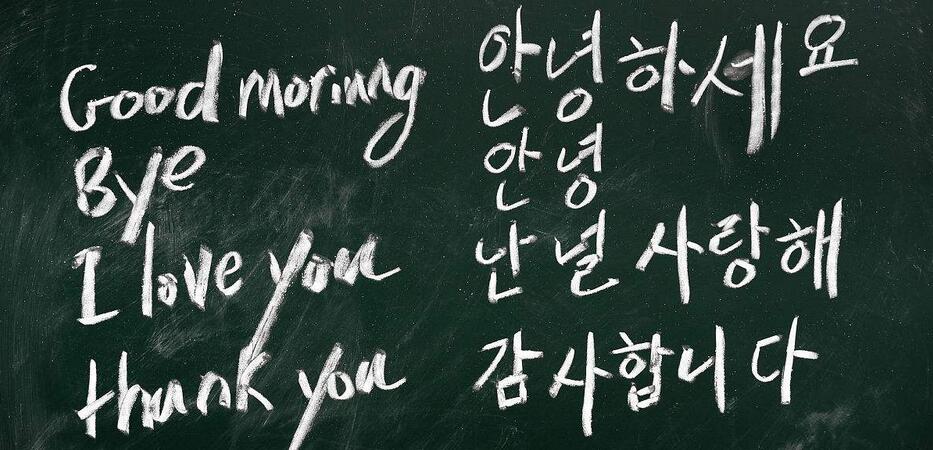 Good morinng 안녕하세요
Bye 안녕
I love you 난 널 사랑해
thank you 감사합니다